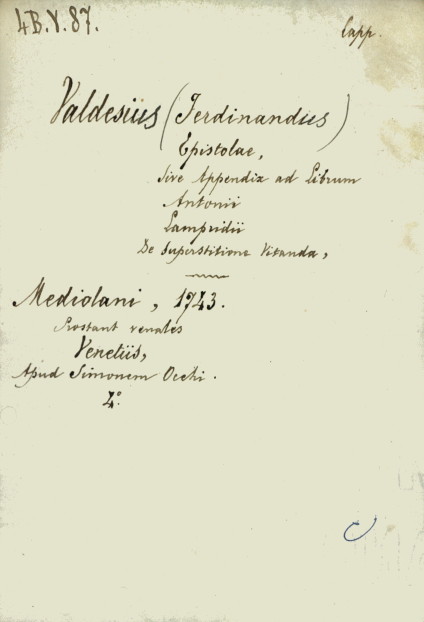 4B.V.87.
Capp.
Valdesiüs (Ferdinandus)
Epistolae,
sive Appendix ad Librum
Antonii
Lampridii
De Superstitione Vitanda,
Mediolani, 1743.
Prostant venales
Venetiis,
Apud Simonem Occhi.
4º.